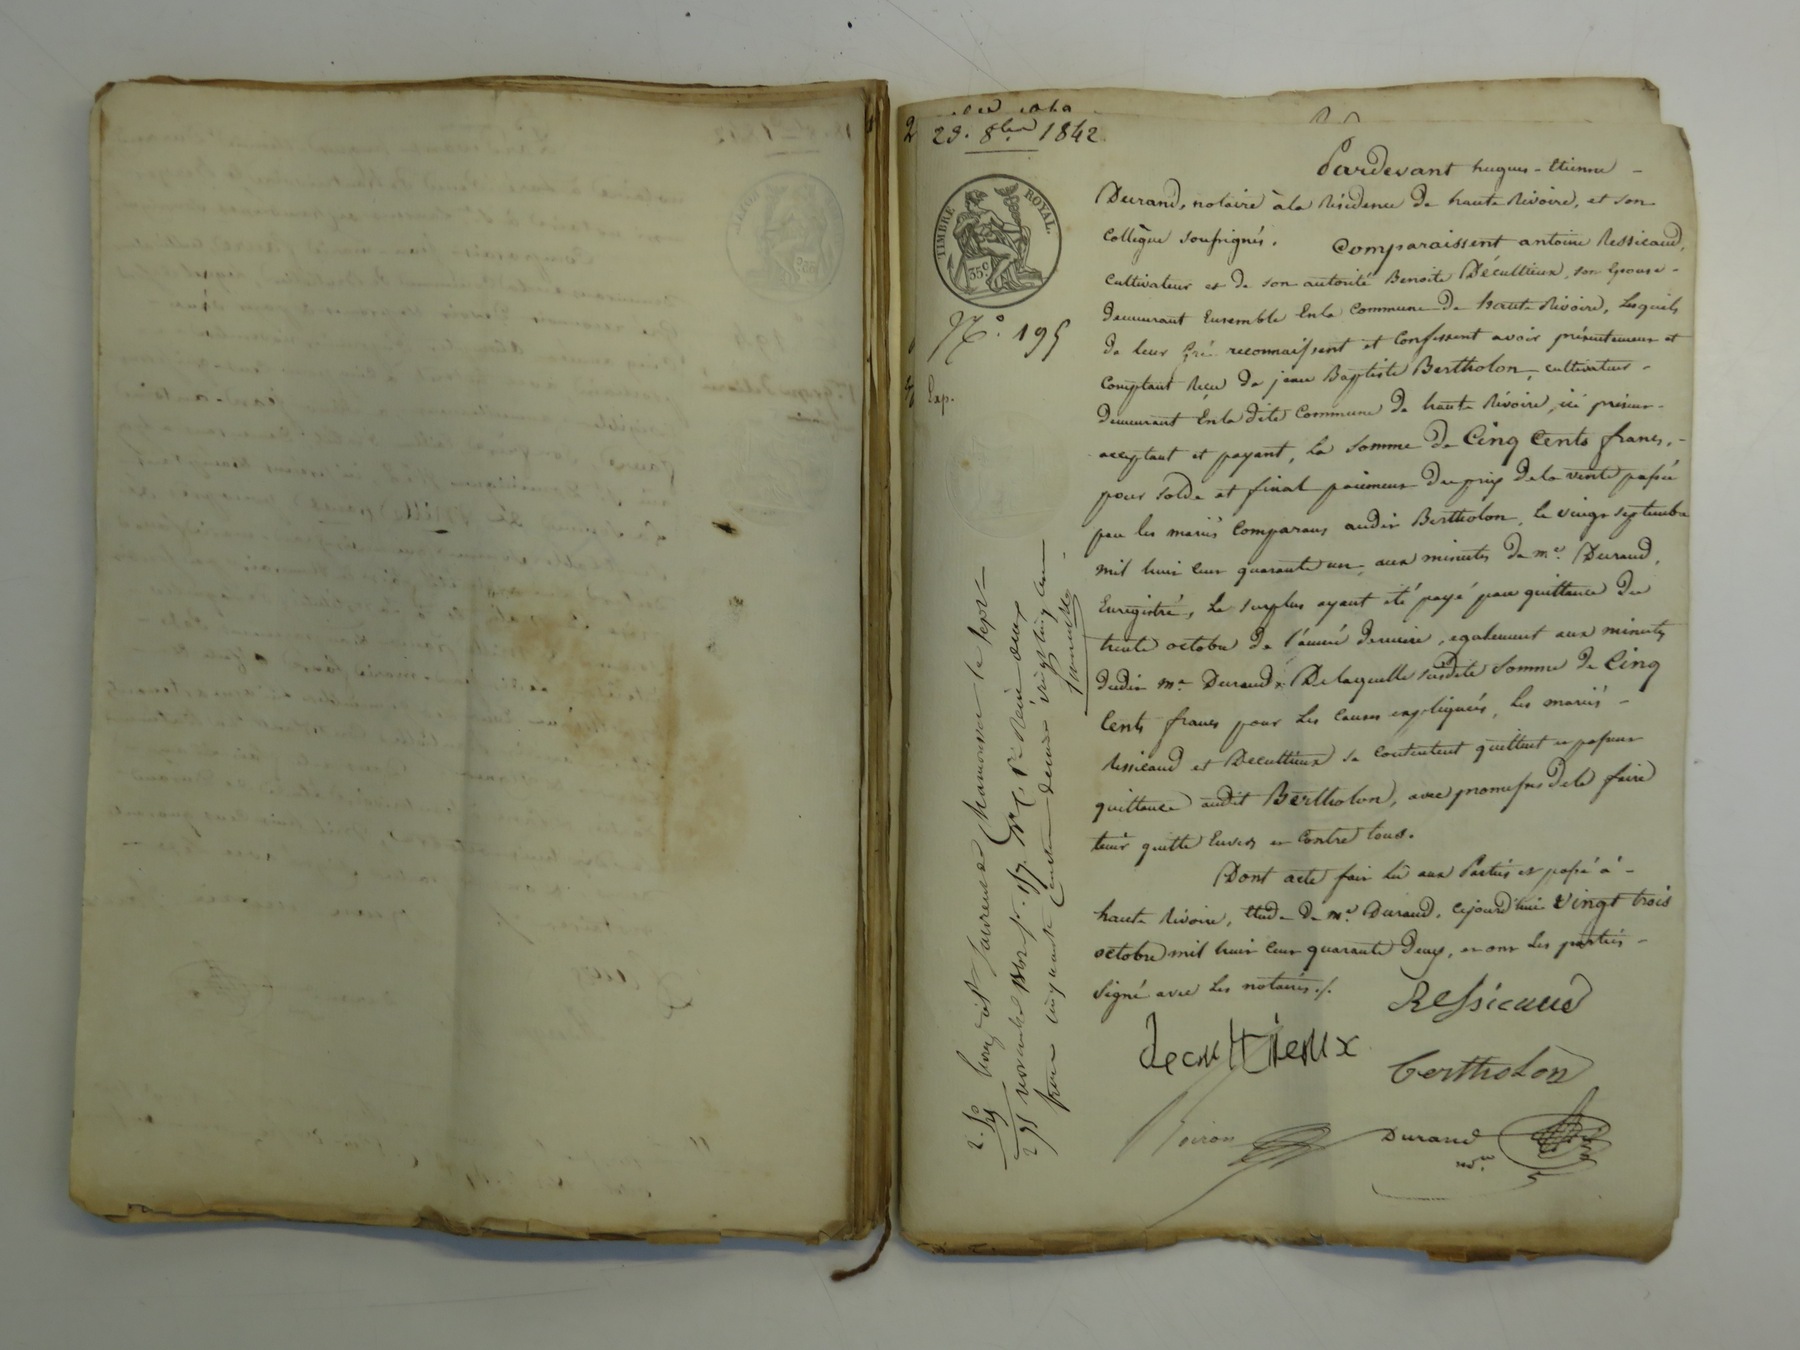 23. 8bre 1842
TIMBRE ROYAL.
35c
No. 195
Exp.
Pardevant hugues-Etienne -
Durand, notaire à la résidence de haute Rivoire, et son
Collègue soussignés. Comparaissent antoine Ressicaud,
Cultivateur et de son autorité Benoite Décultieux, son Epouse -
demeurant Ensemble En la Commune de haute Rivoire, Lesquels
de leur Gré reconnaissent et Confessent avoir présentement et
Comptant Reçu de jean Baptiste Bertholon, cultivateur -
demeurant En la dite Commune de haute Rivoire, ici présent -
acceptant et payant, la somme de Cinq Cents francs, -
pour solde et final paiement du prix de la vente passée
par les mariés Comparans audit Bertholon, le vingt septembre
mil huit cent quarante un, aux minutes de me. Durand,
Enregistré, Le surplus ayant été payé par quittance du
trente octobre de l'année dernière, egalement aux minutes
dudit me Durand. De laquelle susdite Somme de Cinq
Cents francs pour Les Causes expliquées, Les mariés -
Ressicaud et Décultieux se Contentent quittent et passent
quittance audit Bertholon, avec promesses de le faire
tenir quitte Envers et Contre tous.
Dont acte fait Lu aux Parties et passé à -
haute Rivoire, Etude de me. Durand, cejourd'hui vingt trois
octobre mil huit cent quarante Deux, et ont Les parties -
signé avec Les notaires ./.
Ressicaud
decultieux
bertholon
Boiron
Durand
nore
2.50
25
2 75
Enregistré à St Laurent de Chamousset le sept
novembre 1842 fo. 157. Ro C. 1re Reçu deux
francs cinquante Centimes decime vingt cinq cent